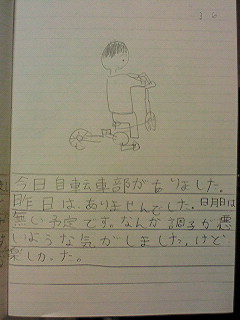 今日自転車部がありました。
昨日は、ありませんでした。日月日は
無い予定です。なんか調子が悪
いような気がしました。けど
楽しかった。